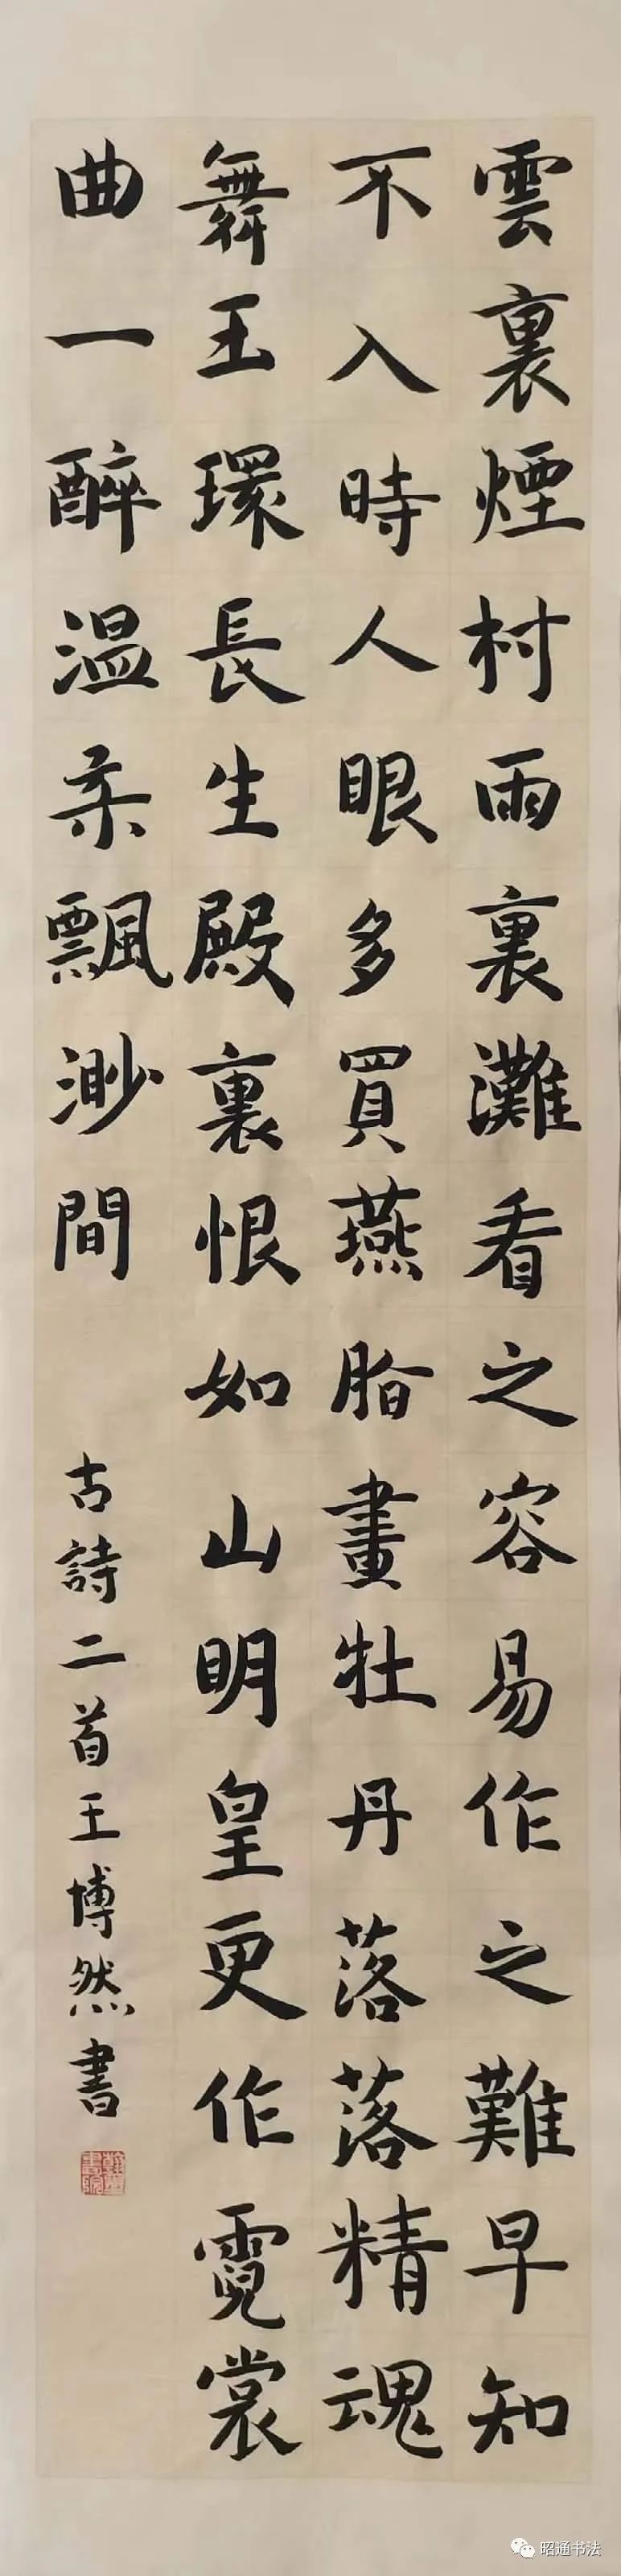 雲裏煙村雨裏灘看之容易作之難早知
不入時人眼多買燕脂畫牡丹落落精魂
舞玉環長生殿裏恨如山明皇更作霓裳
曲一醉温柔飄渺間
古詩二首王博然書
昭通书法